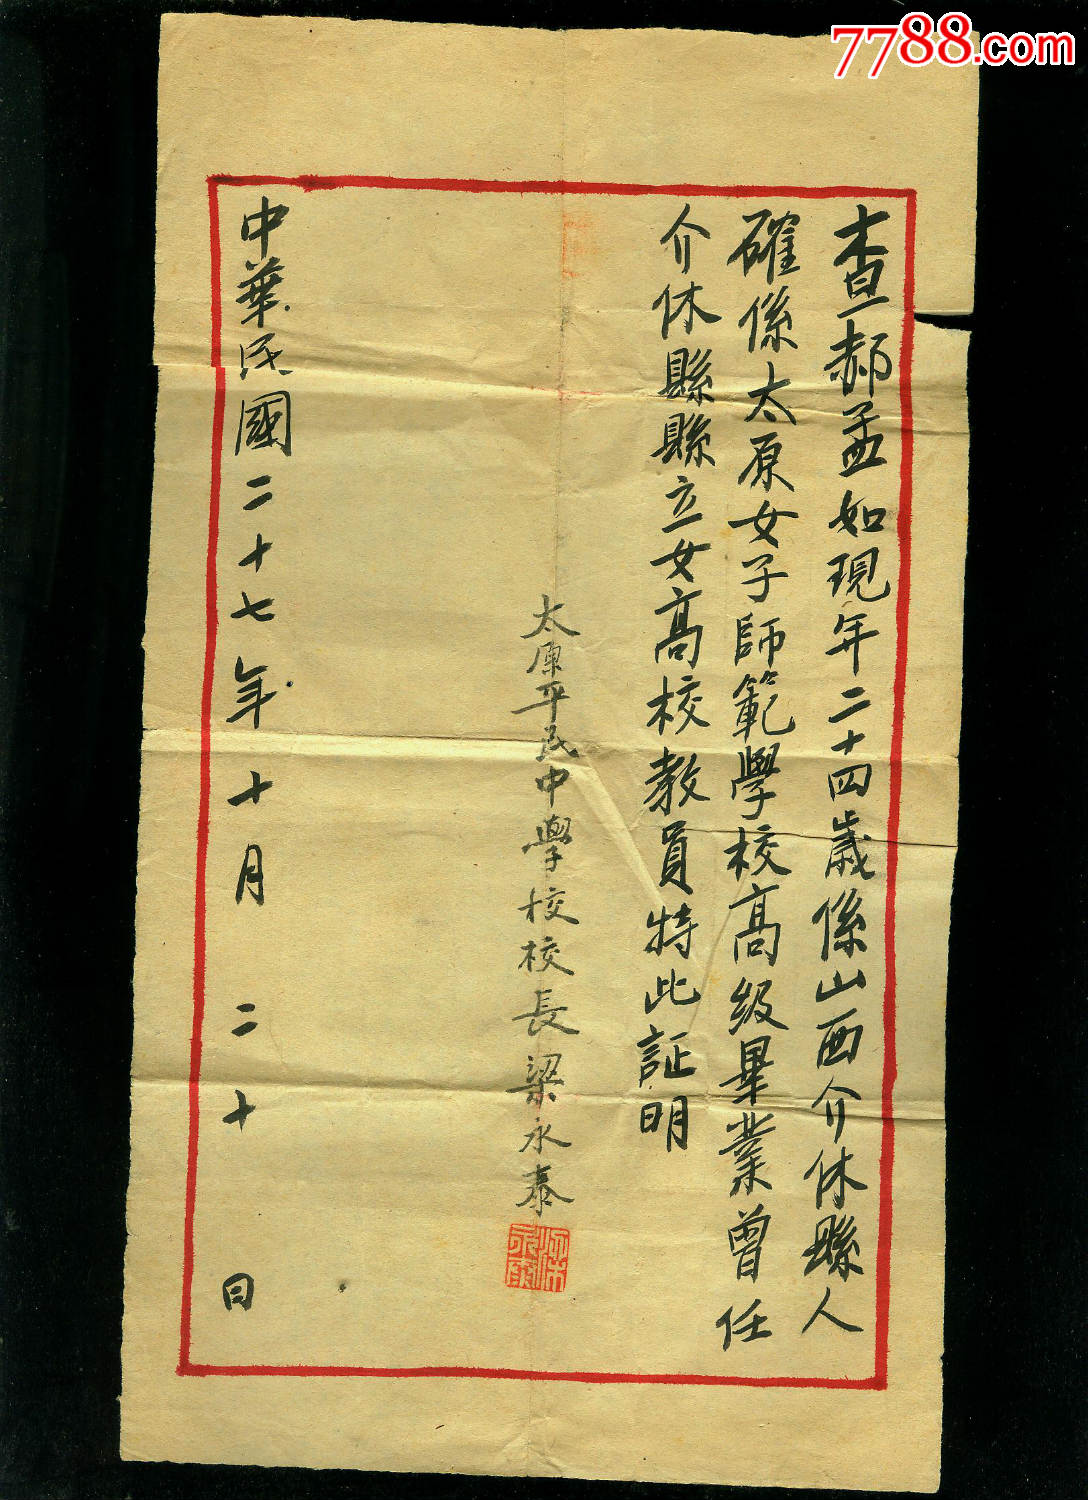 7788.com
查郝孟如現年二十四歲係山西介休縣人
確係太原女子師範學校高級畢業曾任
介休縣縣立女高校教員特此証明
太原平民中學校校長梁永泰
中華民國二十七年十月二十日